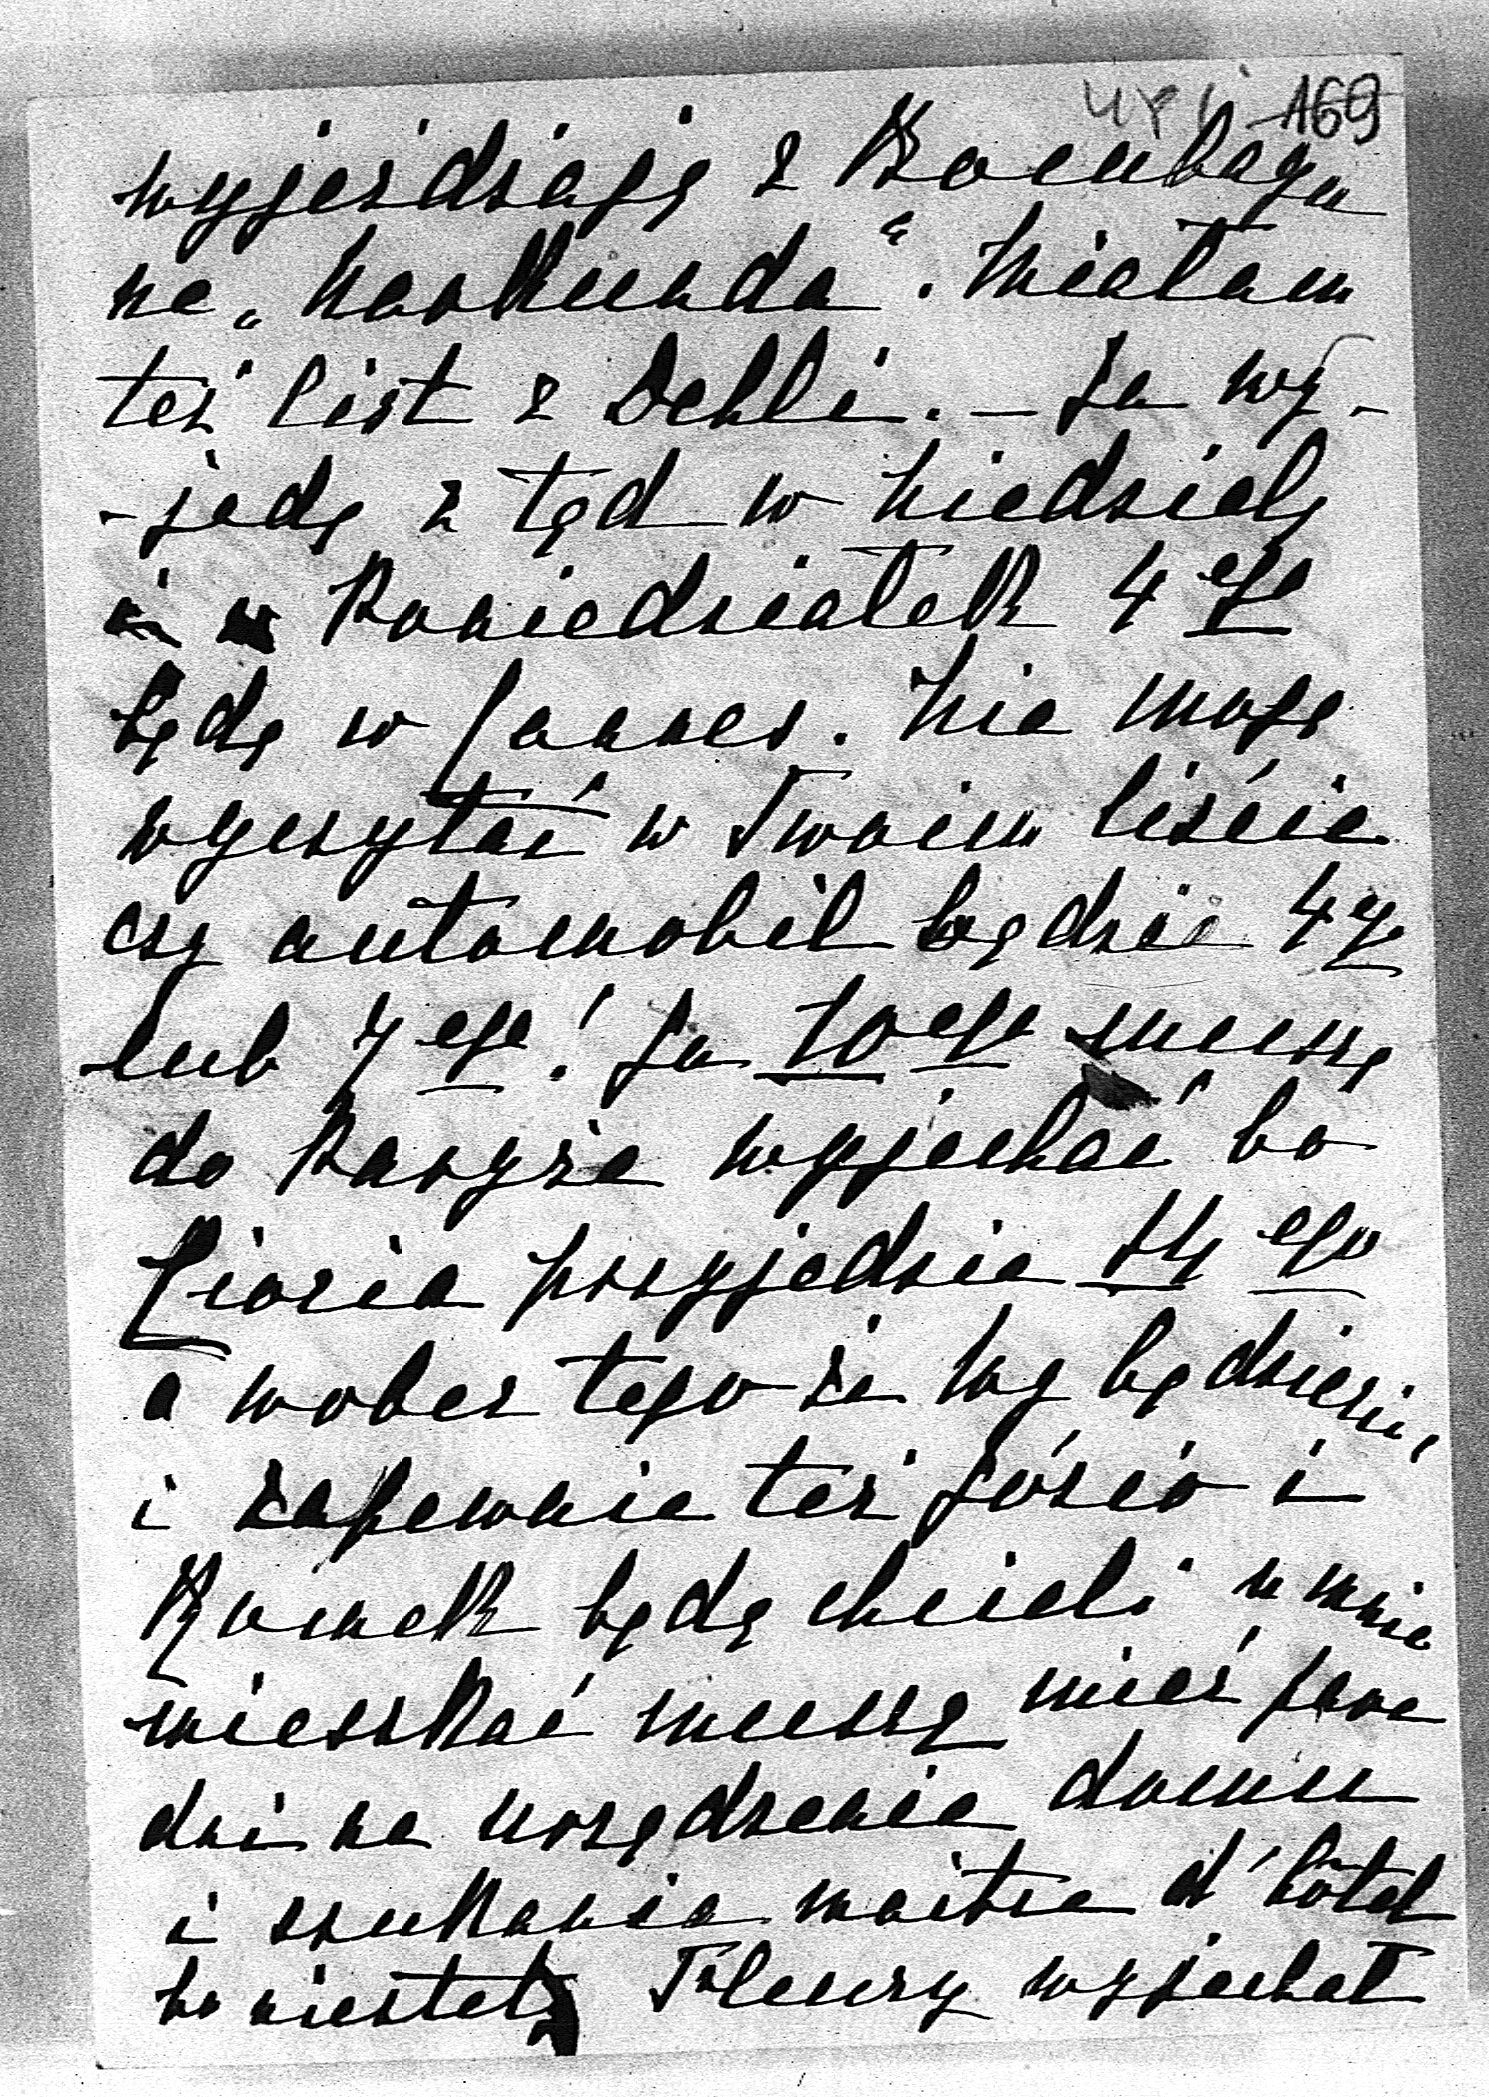 169
wyjeżdżają z Bombayu
na „Narkunda". Miałam
też list z Dehli. – Ja wy-
-jadę z tąd w niedzielę
i w Poniedziałek 4 ego
będę w Cannes. Nie mogę
wyczytać w Twoim liście
czy automobil będzie 4 go
lub 7 ego! Ja 10 ego muszę
do Paryża wyjechać bo
przyjedzie 14 ego
a wobec tego że Wy będziecie,
i zapewnie też Józio i
będą chcieli u mnie
mieszkać muszę mieć parę
dni na urządzenie domu
i szukanie maitre d'hôtel
bo niestety wyjechał